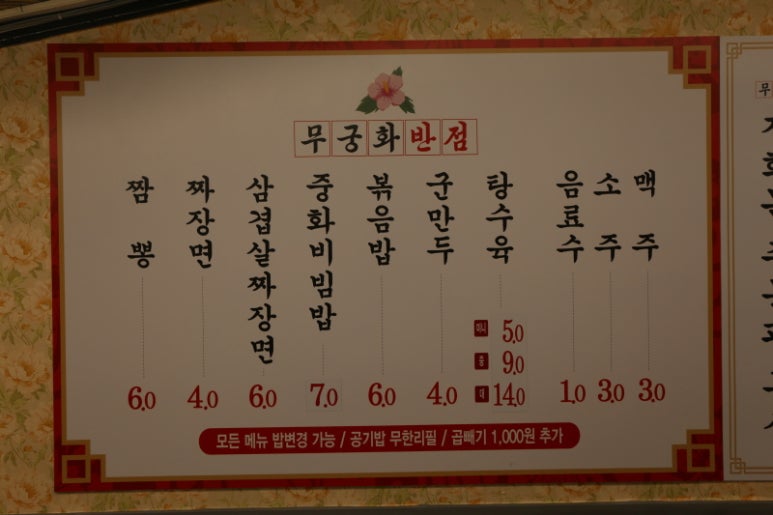 무궁화반점
짬뽕 6.0
짜장면 4.0
삼겹살짜장면 6.0
중화비빔밥 7.0
볶음밥 6.0
군만두 4.0
탕수육
미니 5.0
중 9.0
대 14.0
음료수 1.0
소주 3.0
맥주 3.0
모든 메뉴 밥변경 가능 / 공기밥 무한리필 / 곱빼기 1,000원 추가
무